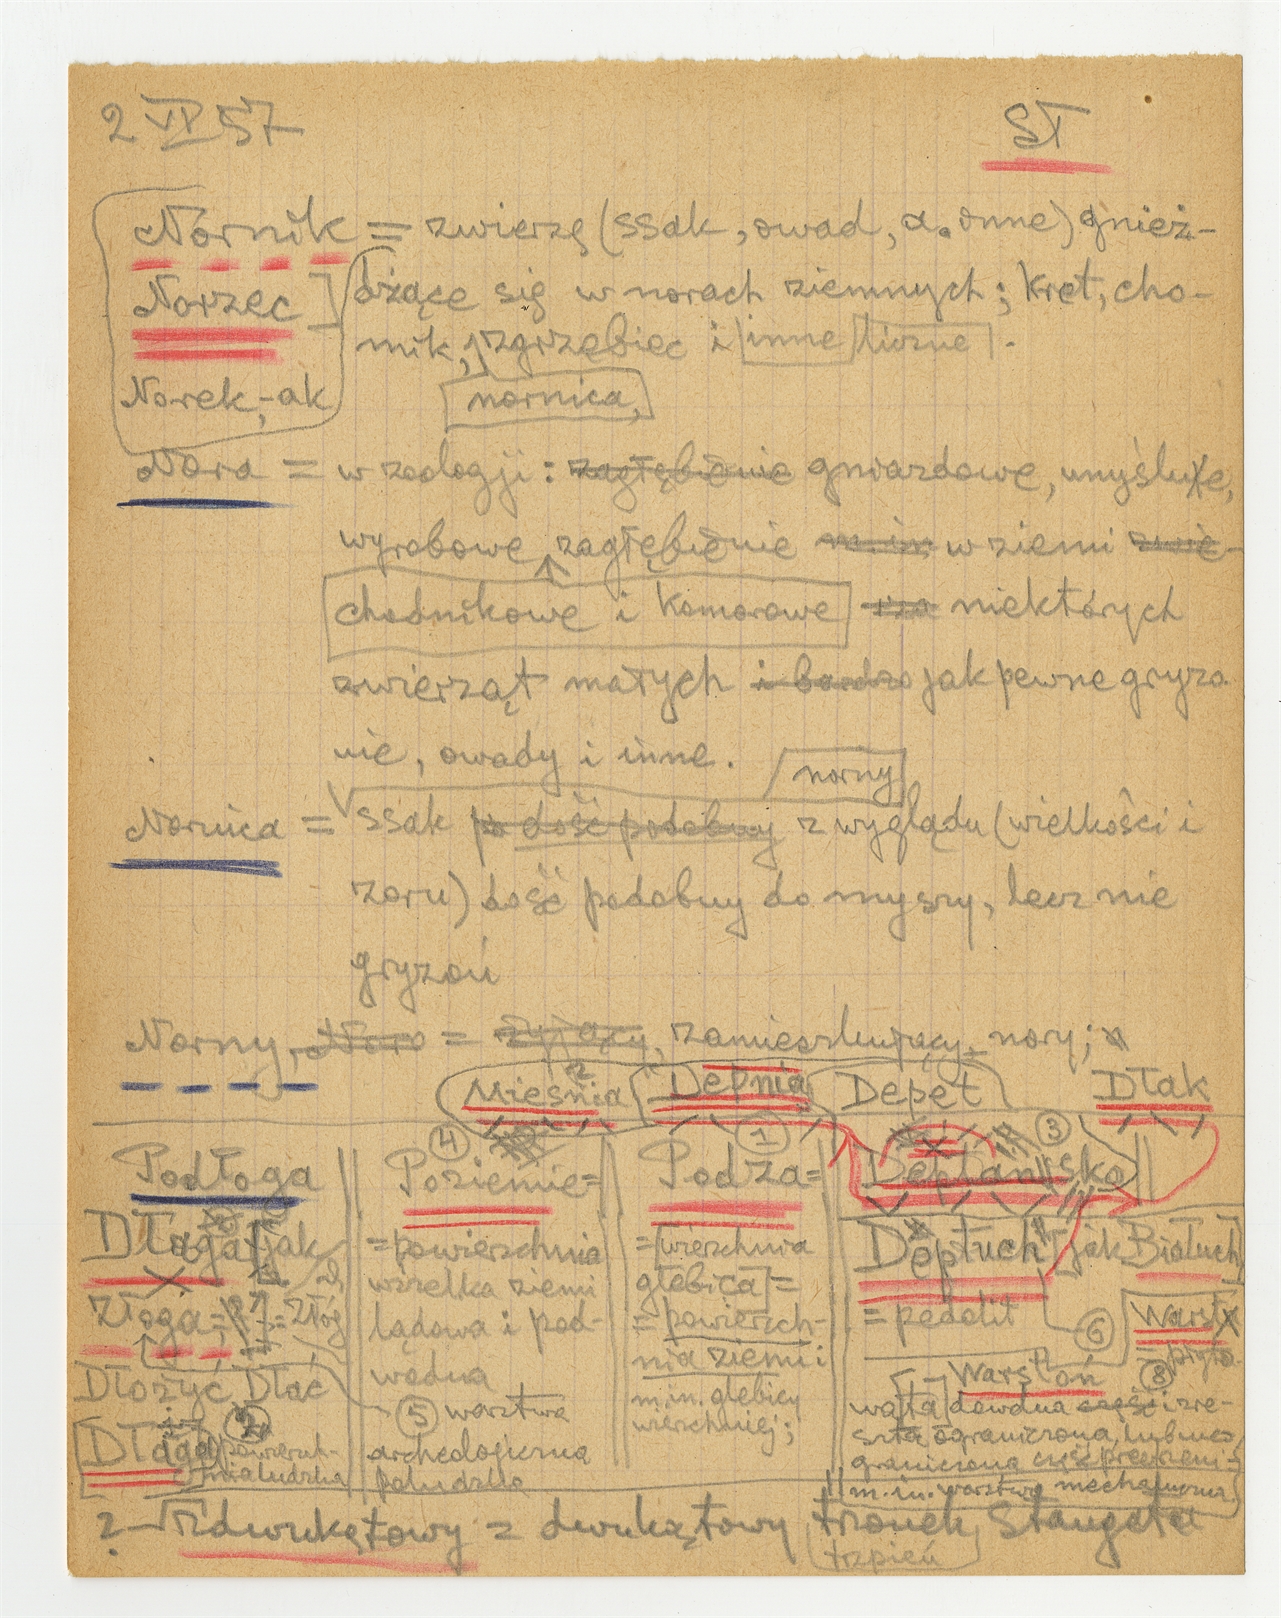 2 VI 57
ST
Nornik = zwierzę (ssak, owad, a. inne) gnież-
Norzec] dżące się w norach ziemnych; kret, cho-
mik, grzebiec i inne liczne.
Norek, -ak
nornica,
Nora = w zoologji: zagłębienie gniazdowe, umyślne,
wyrobowe zagłębienie w ziemi
chodnikowe i komorowe niektórych
zwierząt małych i bardzo jak pewne gryzo
nie, owady i inne.
norny
Nornica = ssak dość podobny z wyglądu (wielkości i
zoru) dość podobny do myszy, lecz nie
gryzoń
Norny, = zamieszkujący nory;
Mieśnia 2 Depnia Depet Dłak
4 1 3
Podłoga
Poziemie=
Podza=
Deptanisko
Dłoga jak
=powierzchnia
=wierzchnia
Deptuch jak Białuch
wszelka ziemi
głębica =
= pedolit
6
Złoga
lądowa i pod-
= powierzch-
wodna
nia ziemi i
Dłożyć Dłać
5 warstwa
m.in. głębicy
wierzchniej;
Warstoń
8 płyta
archeologiczna
wajta dowolna część i ze-
szta ograniczona, lub nieo
graniczona część przestrzeni=
m.in. warstwa mechaniczna
? dwukątowy = dwukątowy trzonek Staugata
trzpień